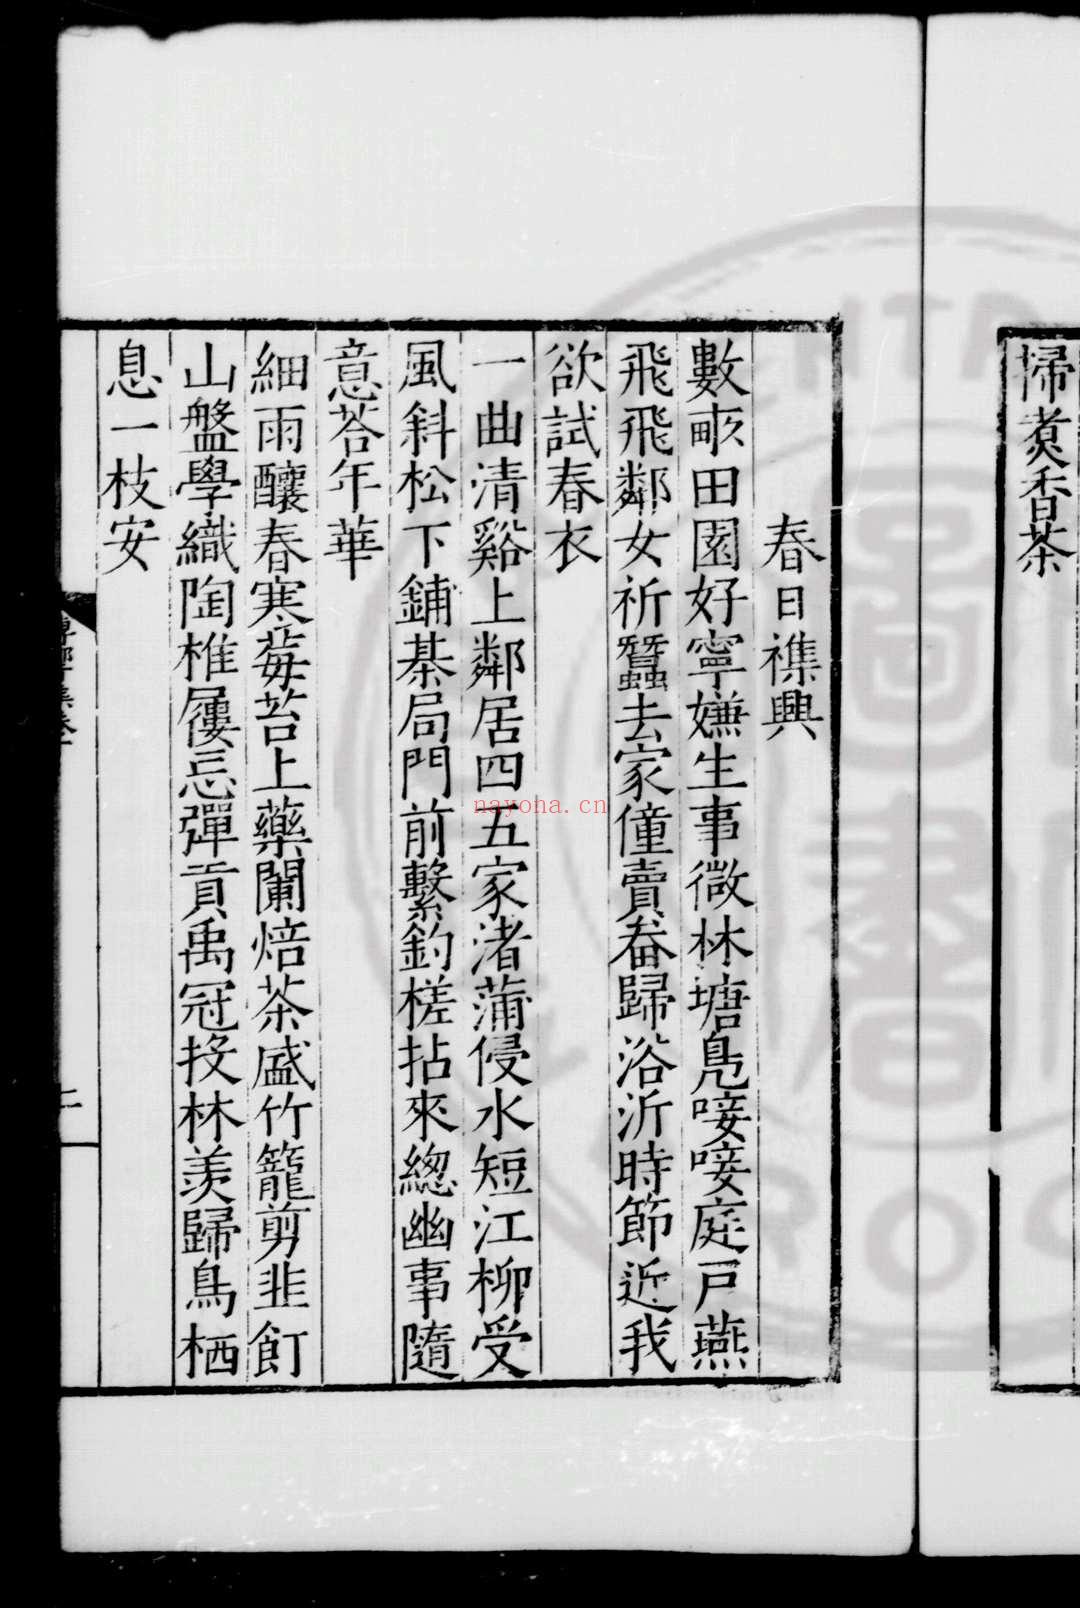 掃煑香茶
春日襍興
數畝田園好寧嫌生事微林塘鳧唼唼庭戸燕
飛飛鄰女祈蠶去家僮賣畚歸浴沂時節近我
欲試春衣
一曲清谿上鄰居四五家渚蒲侵水短江柳受
風斜松下鋪棊局門前繫釣槎拈來總幽事隨
意荅年華
細雨釀春寒莓苔上藥闌焙茶盛竹籠剪韭飣
山盤學織陶椎屨忘彈貢禹冠投林羨歸鳥栖
息一枝安
二
nayona.cn